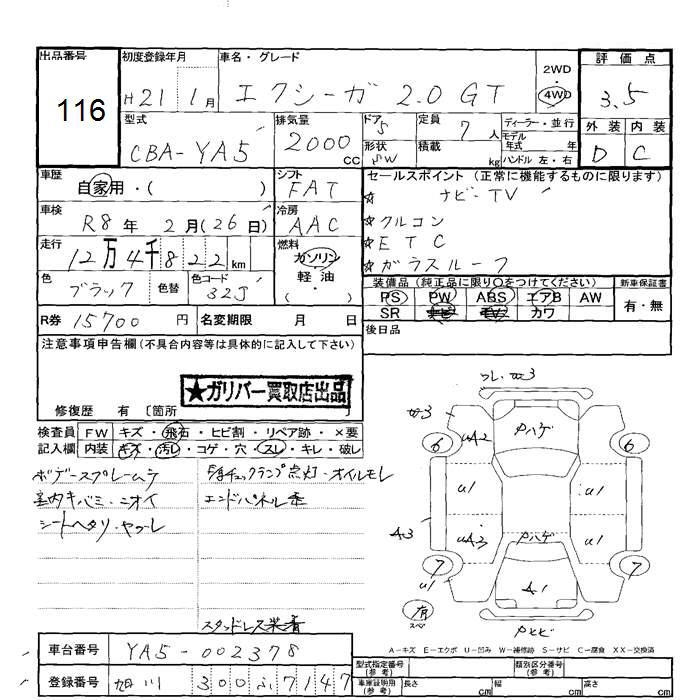 出品番号 初度登録年月 車名・グレード 2WD・4WD 評価点
116 H21 1月 エクシーガ 2.0 GT 3.5
型式 CBA-YA5 排気量 2000cc ドア 5 定員 7人 ディーラー・並行 外装 内装
形状 SW 積載 kg モデル年式 年 ハンドル 左・右 D C
車歴 自家用・( ) シフト FAT セールスポイント (正常に機能するものに限ります)
☆ ナビ・TV
車検 R8年 2月(26日) 冷房 AAC ☆クルコン
走行 12万4千822km 燃料 ガソリン 軽油 ・( ) ☆ETC
☆ガラスルーフ
色 ブラック 色替 色コード 32J 装備品 (純正品に限り○をつけてください) 新車保証書
PS PW ABS エアB AW 有・無
SR カワ
R券 15700円 名変期限 月 日 後日品
注意事項申告欄 (不具合内容等は具体的に記入して下さい)
★ガリバー買取店出品
修復歴 有 〔箇所 〕
検査員 FW キズ・飛石・ヒビ割・リペア跡・×要
記入欄 内装 キズ・汚レ・コゲ・穴・スレ・キレ・破レ
ボデースプレームラ チェックランプ点灯・オイルモレ
室内キバミ・ニオイ エンドパネル歪
シートヘタリ・ヤブレ
スタッドレス装着
6 UA2 Pハゲ 6
U1 U1
A3 UA3 Pハゲ U1
7 7
U1 A1
有
A-キズ E-エクボ U-凹み W-補修跡 S-サビ C-腐食 XX-交換済
車台番号 YA5-002378 型式指定番号 (参考) 類別区分番号 (参考)
登録番号 旭川 300ふ7147 車庫証明用 (参考) 長さ cm 幅 cm 高さ cm